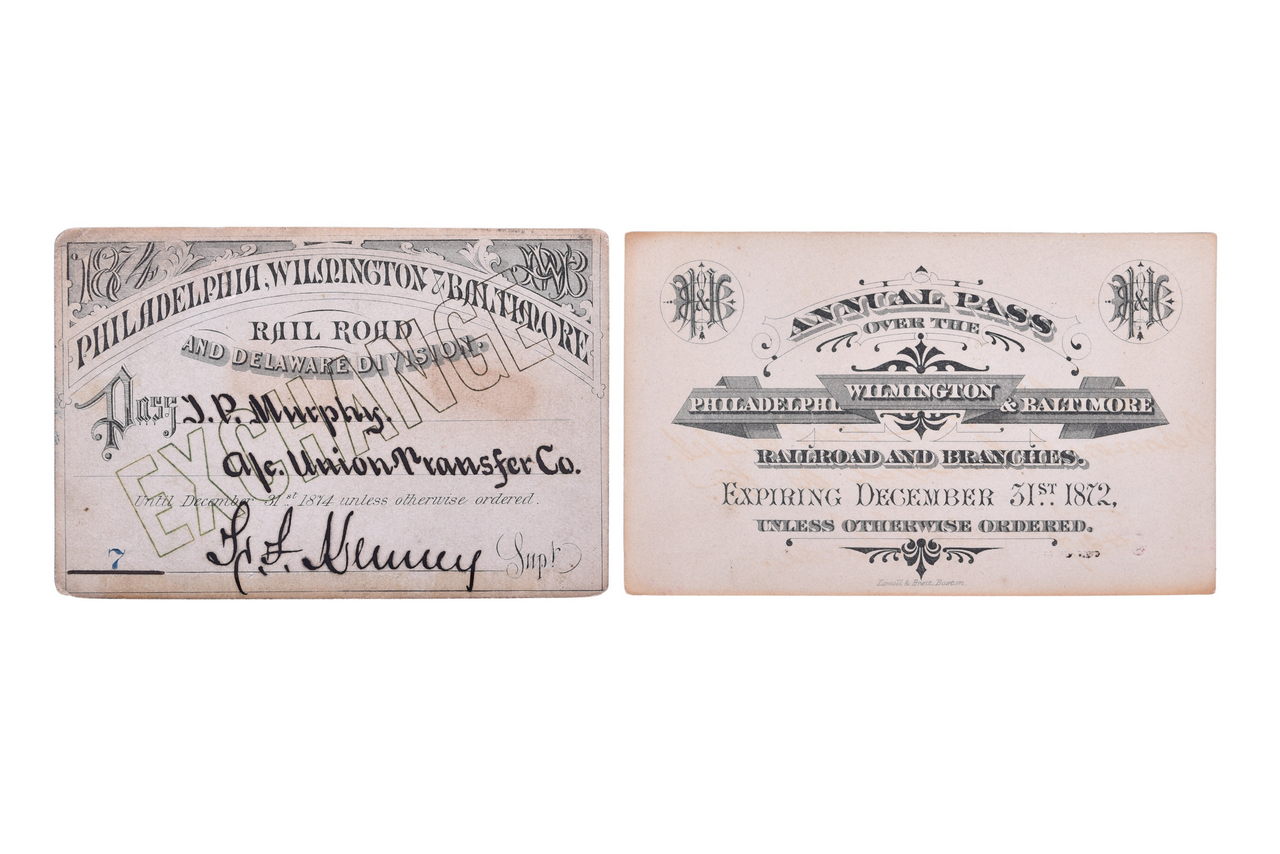 1874
PHILADELPHIA, WILMINGTON & BALTIMORE
RAIL ROAD
AND DELAWARE DIVISION.
EXCHANGE
Pass J. P. Murphy.
a/c. Union Transfer Co.
Until December 31st 1874 unless otherwise ordered.
7
Supt.
ANNUAL PASS
OVER THE
PHILADELPHI WILMINGTON & BALTIMORE
RAILROAD AND BRANCHES.
EXPIRING DECEMBER 31ST 1872,
UNLESS OTHERWISE ORDERED.
Lowell & Brett, Boston